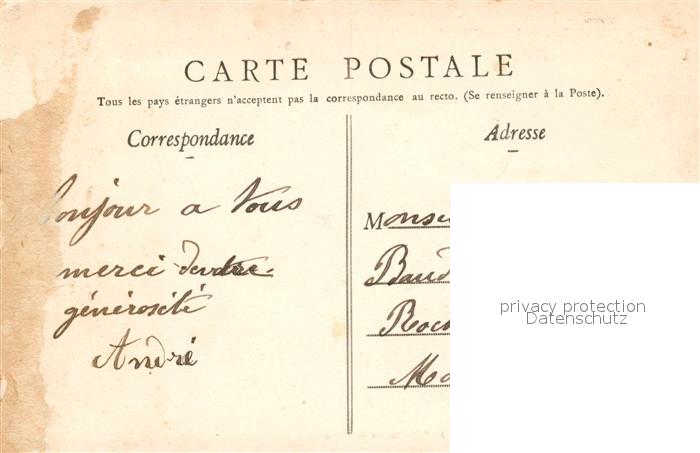 CARTE POSTALE
Tous les pays étrangers n'acceptent pas la correspondance au recto. (Se renseigner à la Poste).
Correspondance
Adresse
bonjour a Vous
merci de votre
générosité
André
Monsieu
Baud
Roc
Mo
privacy protection
Datenschutz